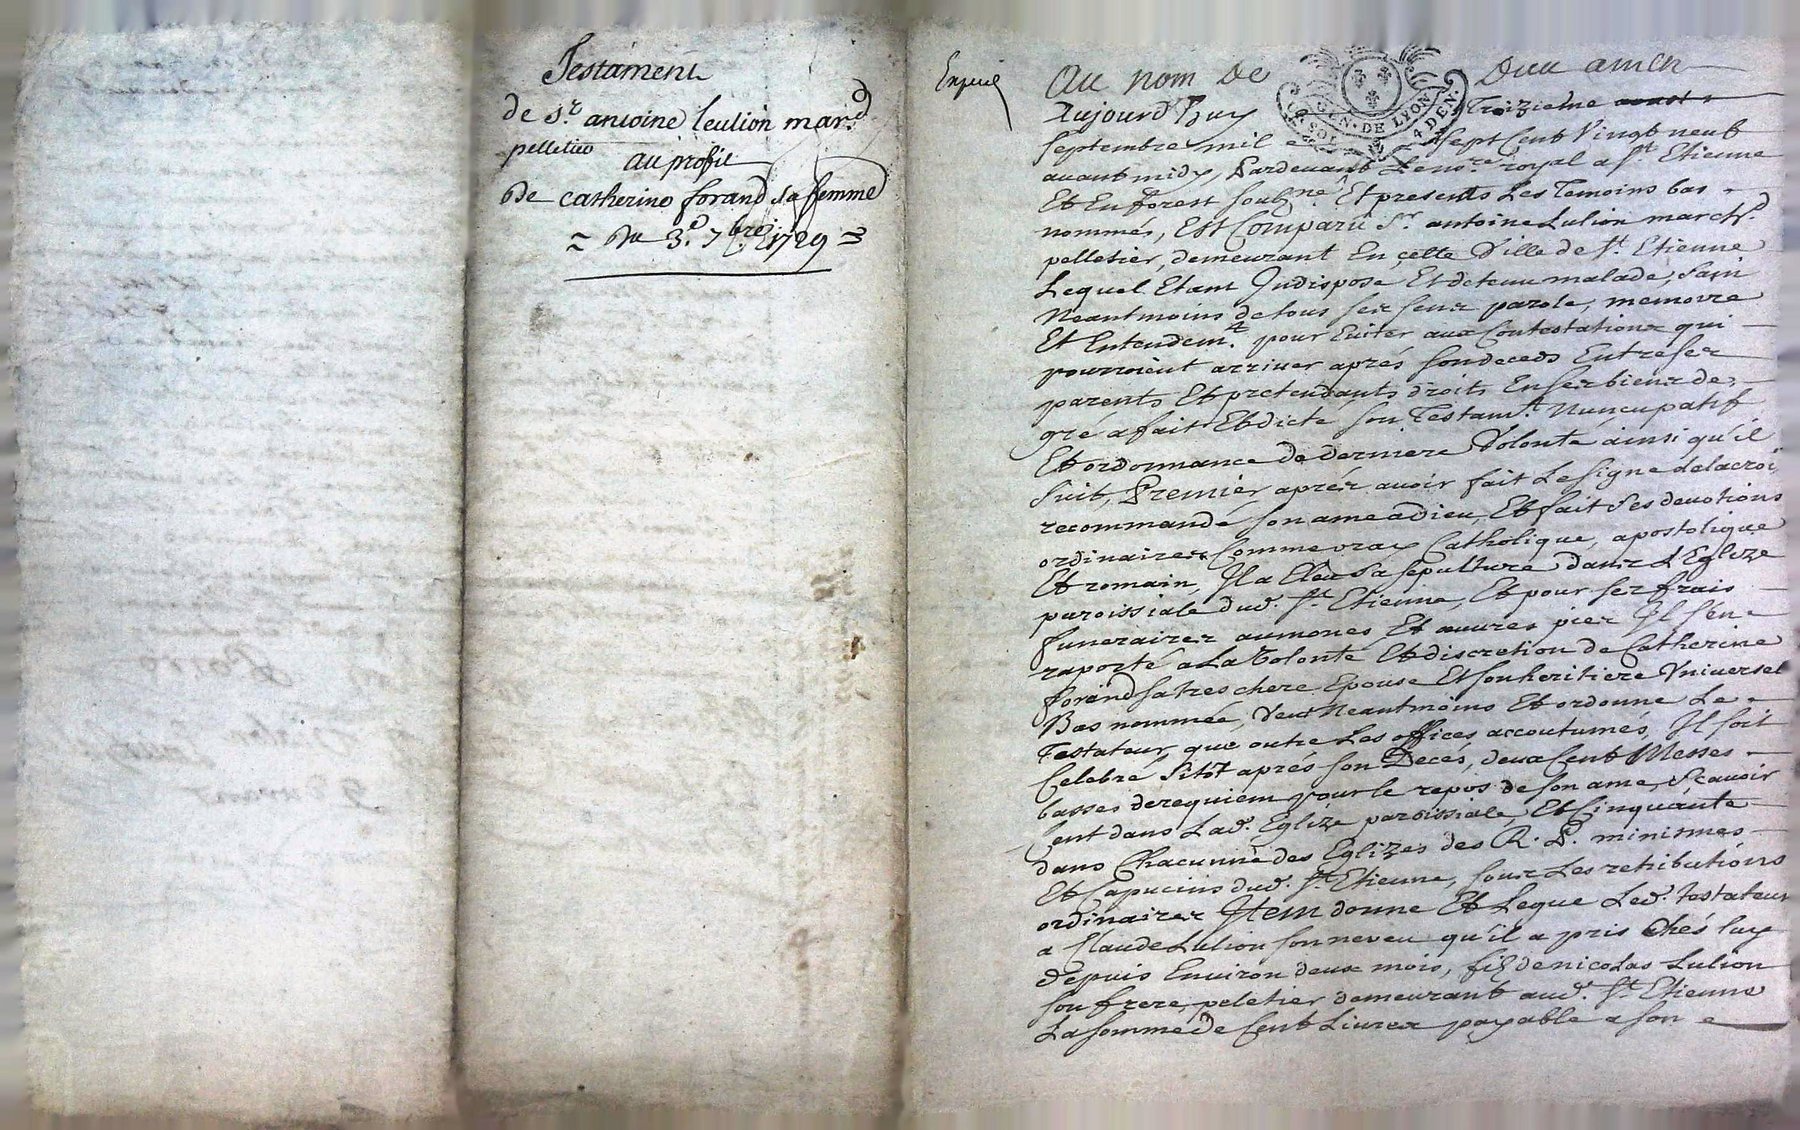 Testament
de Sr. antoine leulion mard.
pelletier
au profit
de catherine forand sa femme
= du 3e. 7bre. 1729 =
au nom de Dieu amen
Aujourd'huy Troizieme
GEN. DE LYON 4 DEN.
Septembre mil sept Cent Vingt neuf
avant midy, Pardevant Le nore. royal a St. Etienne
Et En forest soubné. Et presents Les Temoins bas
nommés, Est Comparu Sr. antoine Lulion marchd.
pelletier, demeurant En cette Ville de St. Etienne
Lequel Etant Indispose Et detenu malade, Sain
Neantmoins de tous ses sens parole, memoire
Et Entendemt. pour Eviter aux Contestations qui
pourroient arriver aprés son deceds Entre ses
parents Et pretendants droits En ses biens de
gré a fait Et dicté son Testamt. Nuncupatif
Et ordonnance de derniere Volonté ainsi qu'il
suit, Premier aprés avoir fait Le signe de la croi
recommandé son ame a Dieu, Et fait ses devotions
ordinaires Comme vray Catholique, apostolique
Et romain, Il a Eleu Sa sepulture dans L'Eglize
paroissiale dud. St. Etienne, Et pour ses frais
funeraires aumones Et œuvres pies Il s'en
raporté a La Volonté Et discretion de Catherine
forand sa tres chere Epouse Et son heritiere Universel
Bas nommée, Veut Neantmoins Et ordonne Le
Testateur que outre Les offices accoutumés, Il soit
Celebré Sitôt aprés son Decés, deux Cent Messes
basses de requiem pour le repos de son ame, scavoir
Cent dans Lad. Eglize paroissiale, Et Cinquante
dans Chacunne des Eglizes des R. P. minismes
Et Capucins dud. St. Etienne, sous Les retributions
ordinaires Item donne Et Legue Led. testateur
a Claude Lulion son neveu qu'il a pris Chés luy
depuis Environ deux mois, fils de nicolas Lulion
son frere, peletier demeurant aud. St. Etienne
La somme de Cent Livres payable a son